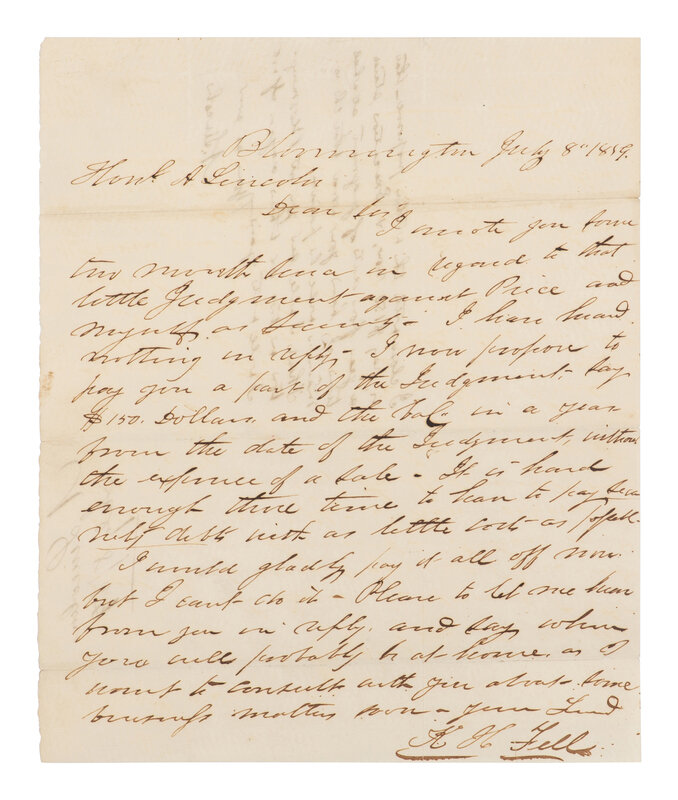 Bloomington July 8th 1859.
Honl A Lincoln
Dear Sir
I wrote you some
two month since in regard to that
little Judgment against Price and
myself as Security - I have heard
nothing in reply - I now propose to
pay you a part of the Judgment, say
$150. Dollars, and the balc in a year
from the date of the Judgment, without
the expence of a sale - It is hard
enough these time to have to pay secu
rity debts with as little cost as possible
I would gladly pay it all off now
but I cant do it - Please to let me hear
from you in reply, and say when
you will probably be at home, as I
want to consult with you about some
business matters soon - your
K H Fell